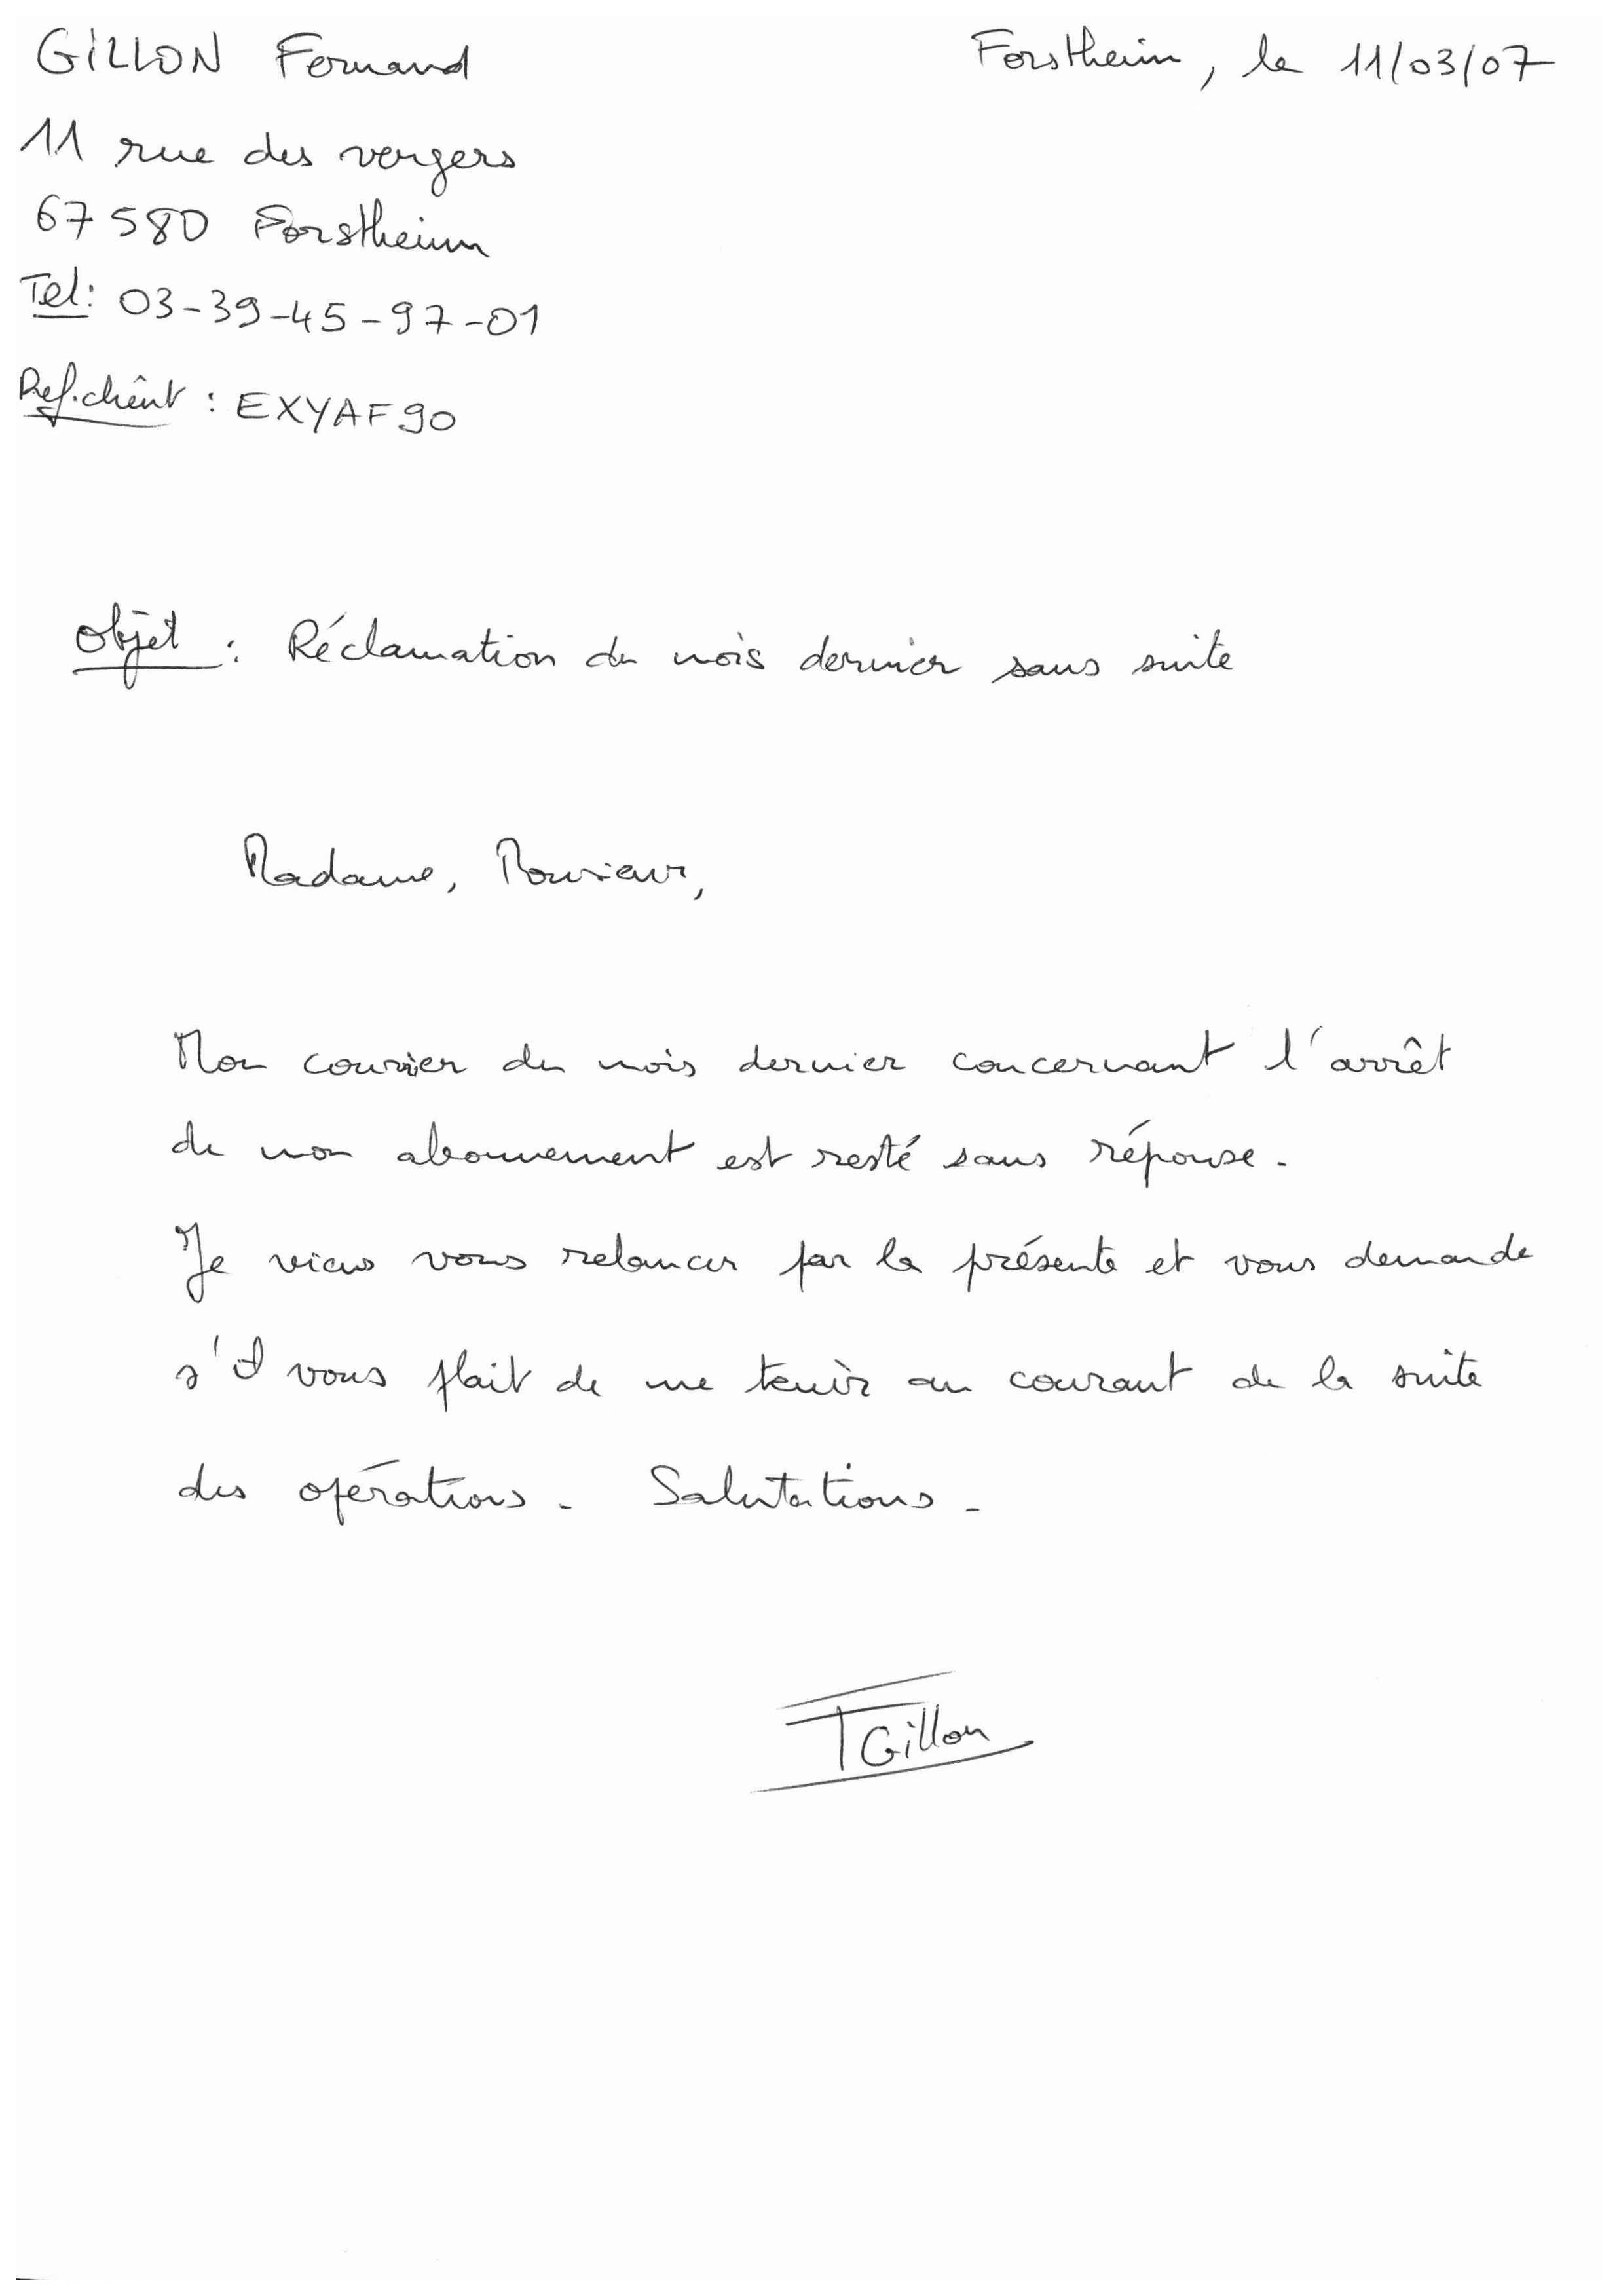 GILLON Fernand
Forstheim, le 11/03/07
11 rue des vergers
67580 Forstheim
Tel: 03-39-45-97-01
Ref.client : EXYAF90
Objet : Réclamation du mois dernier sans suite
Madame, Monsieur,
Mon courrier du mois dernier concernant l'arrêt
de mon abonnement est resté sans réponse.
Je viens vous relancer par la présente et vous demande
s'il vous plait de me tenir au courant de la suite
des opérations. Salutations.
F Gillon